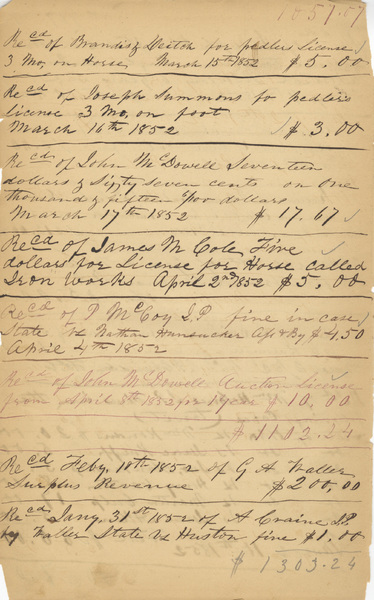 1057.07
Recd of Brandis & Deitch for pedlers License
3 Mo, on Horse March 15th 1852 $5.00
Recd of Joseph Summons fo pedler's
license 3 Mo, on foot
March 16th 1852 $3.00
Recd of John McDowell Seventeen
dollars & Sixty seven cents on One
thousand & fifteen dollars
March 17th 1852 $17.67
Recd of James M Cole Five
dollars for License for Horse called
Iron Works April 2nd 1852 $5.00
Recd of P McCoy J.P. fine in case
State vs Nathan Hunsucker $4.50
April 4th 1852
Recd of John McDowell Auction License
from April 5th 1852 for 1 year $10.00
$1102.24
Recd Feby. 18th 1852 of G A Waller
Surplus Revenue $200,00
Recd Jany. 31st 1852 of A Craine J.P.
by Waller State vs Huston fine $1.00
$1303.24